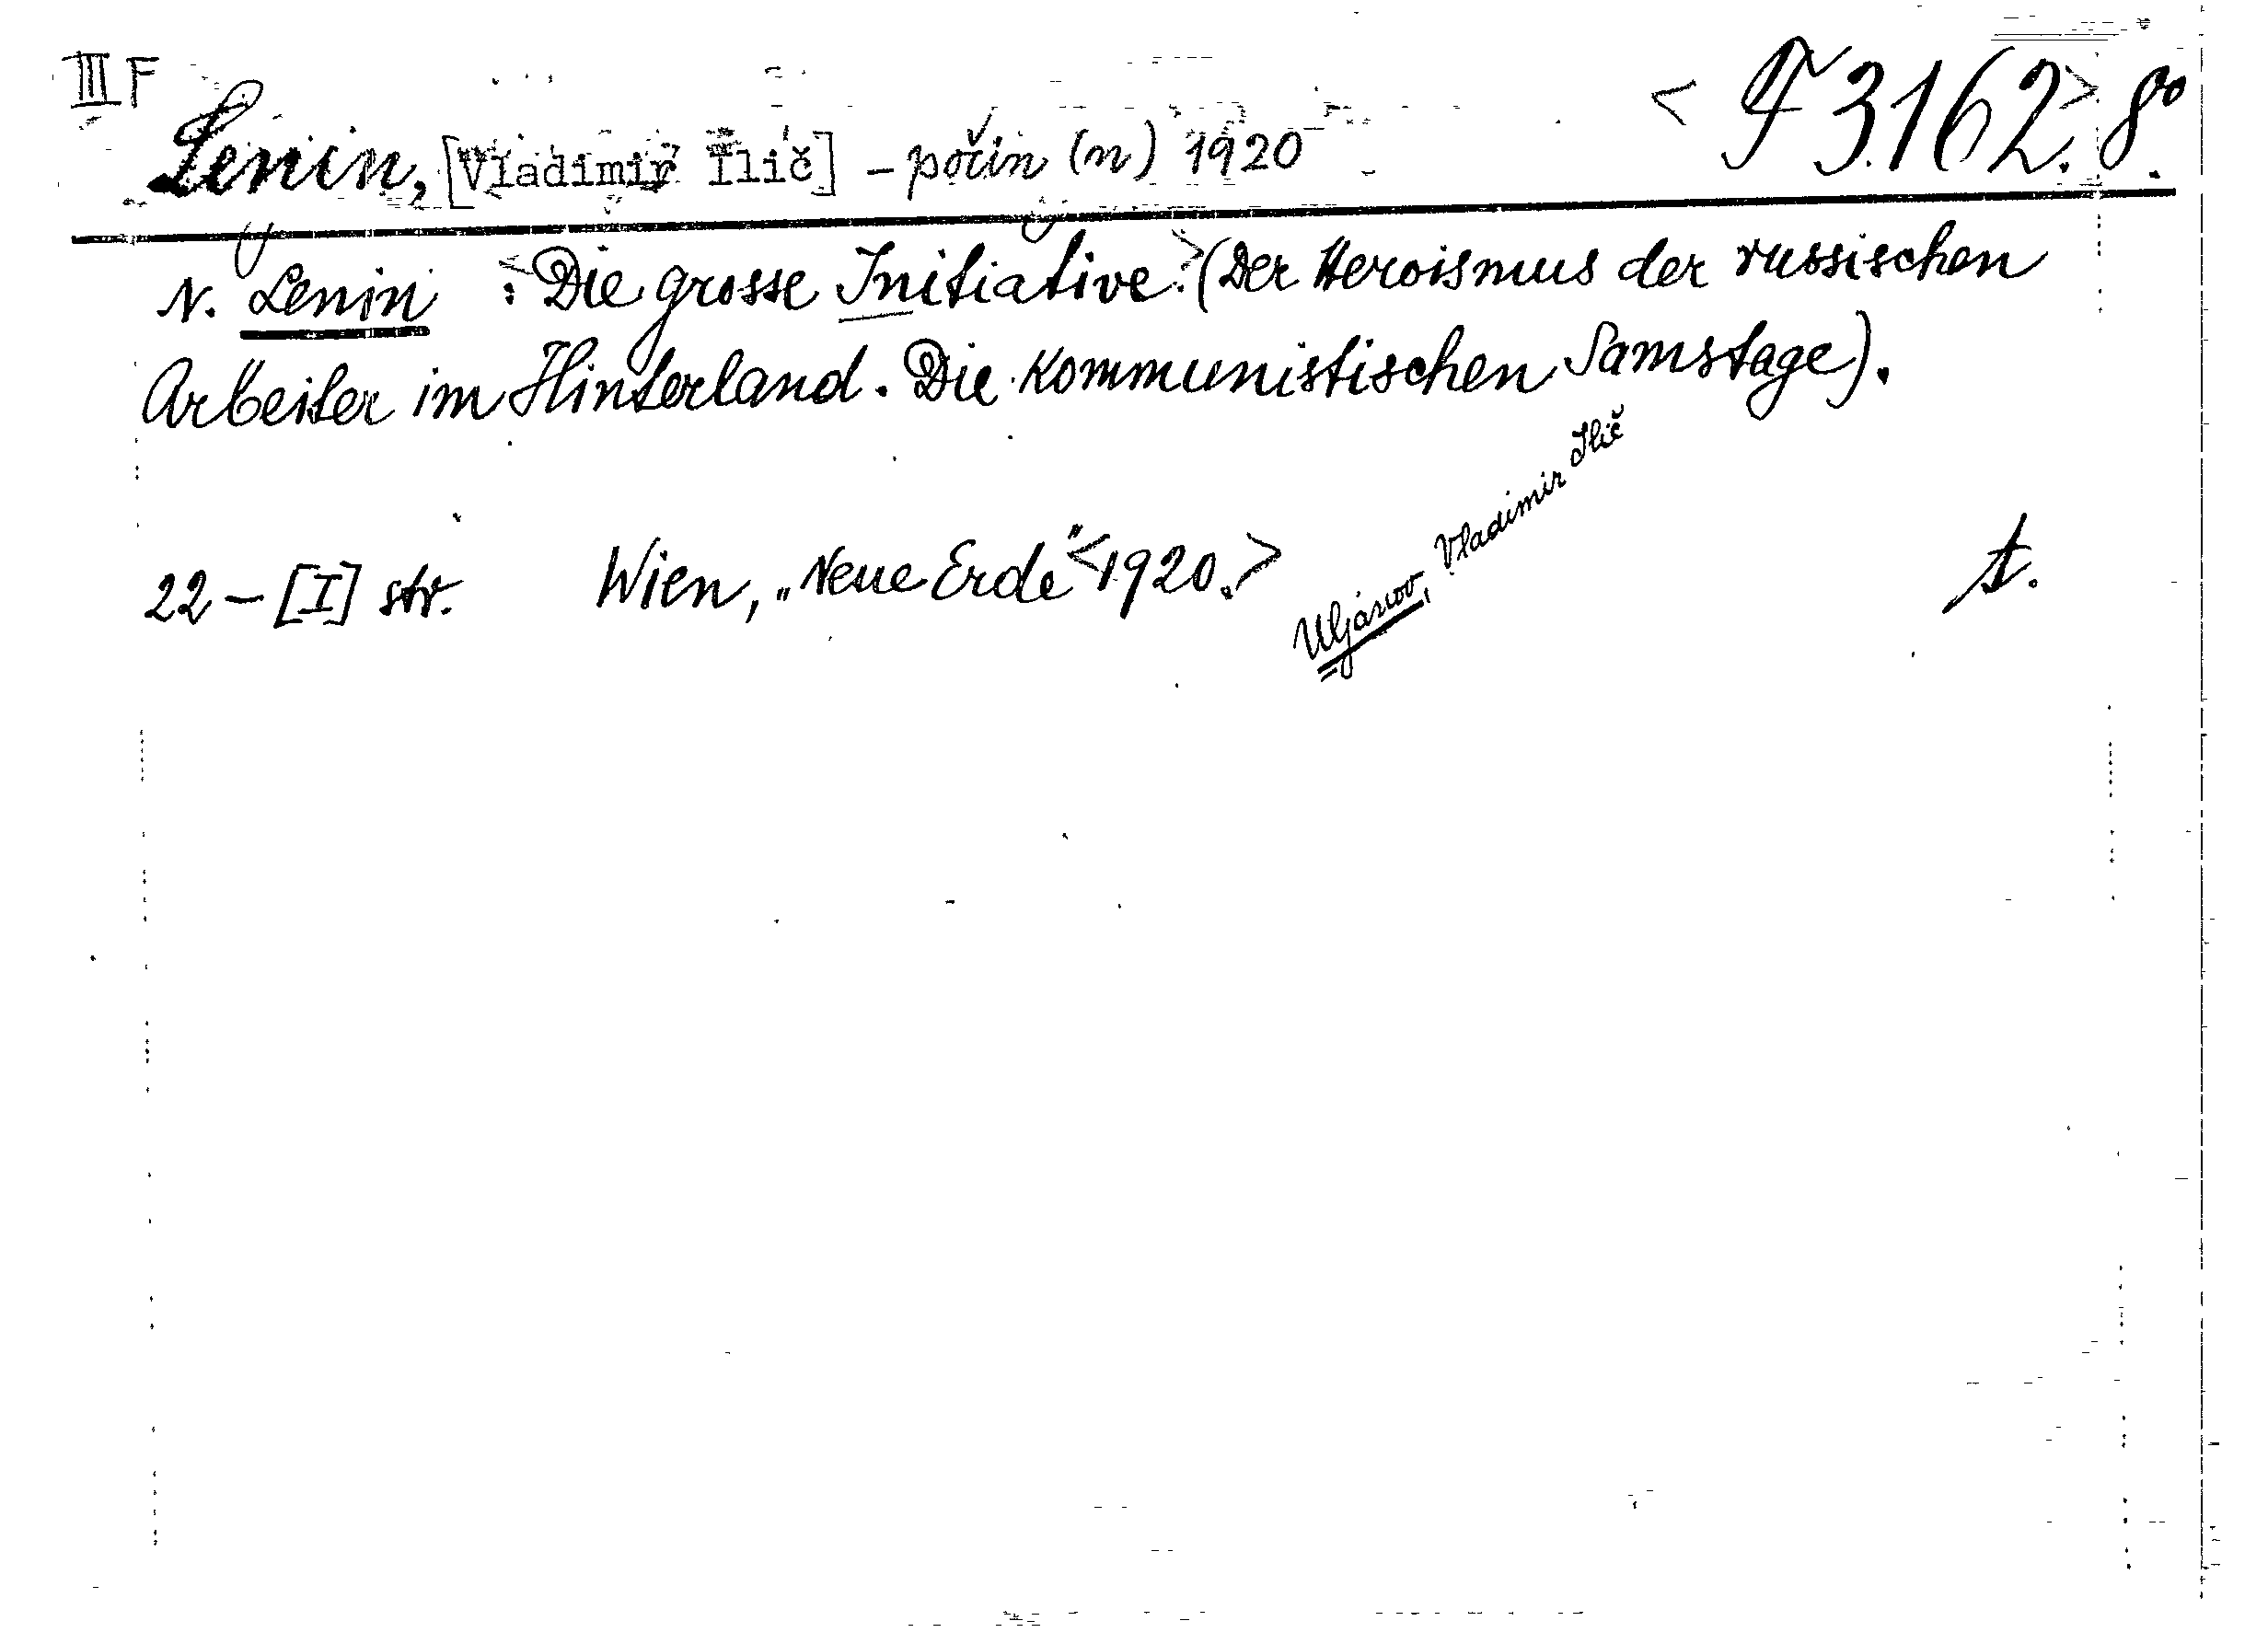 III F
< F 3.162.> 8°.
Lenin, [Vladimir Ilič] - počin (n) 1920
N. Lenin : <Die grosse Initiative.> (Der Heroismus der russischen
Arbeiter im Hinterland. Die kommunistischen Samstage).
22 - [I] str. Wien, „Neue Erde" <1920.>
t.
Uljanov, Vladimir Ilič